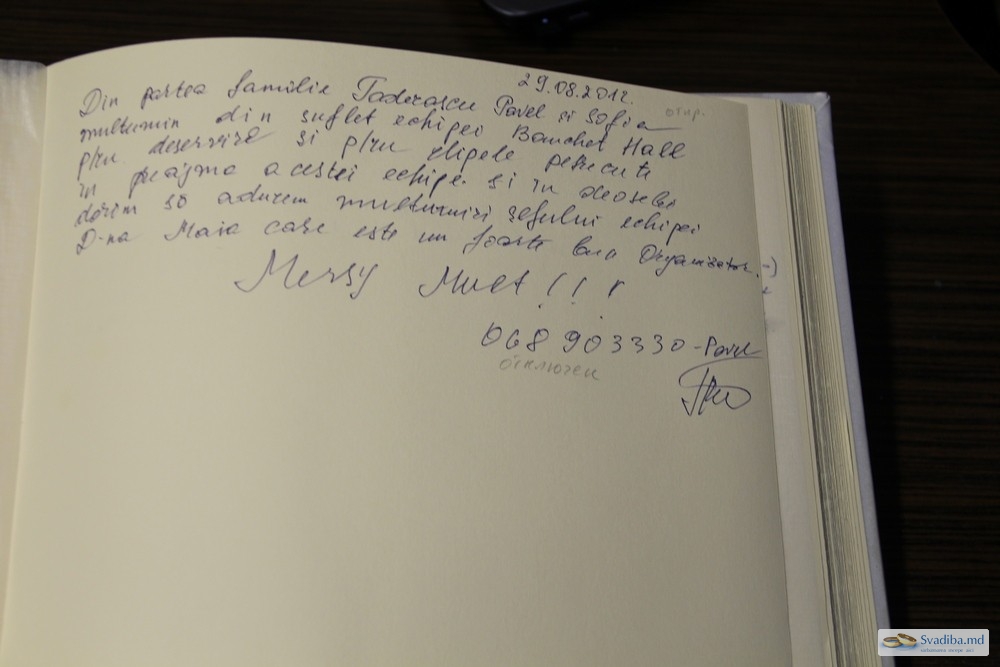 29.08.2012.
Din partea familie Taderascu Pavel și Sofia
отпр.
multumim din suflet echipei Banchet Hall
p/ru deservire si p/ru clipele petrecute
în preajma acestei echipe. si in deosebi
dorim să aducem multumiri șefului echipei
D-na Maia care este un foarte bun Organizator. :-)
Mersy Mult!!!
068 903330 - Pavel
отключен
Svadiba.md